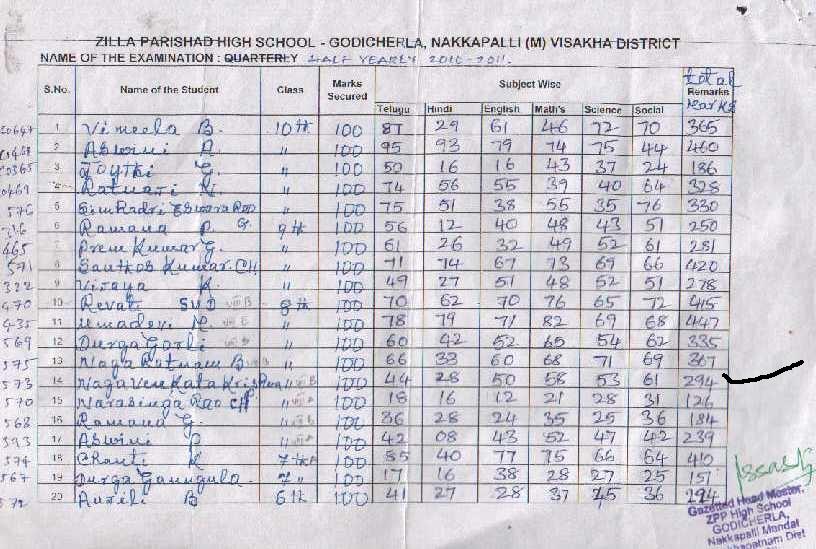 ZILLA PARISHAD HIGH SCHOOL - GODICHERLA, NAKKAPALLI (M) VISAKHA DISTRICT
NAME OF THE EXAMINATION : QUARTERLY HALF YEARLY 2010-2011.
S.No. Name of the Student Class Marks Secured Subject Wise total Remarks marks
Telugu Hindi English Math's Science Social
1 Vimeela B. 10th 100 87 29 61 46 72 70 365
2 Aswini 〃 100 95 93 79 74 75 44 460
3 Joythi G. 〃 100 50 16 16 43 37 24 186
Ratnari K. 〃 100 74 56 55 39 40 64 328
576 5 Simhadri Eswara Rao 〃 100 75 51 38 55 35 76 330
6 Ramana P. G. 9th 100 56 12 40 48 43 51 250
465 7 Prem Kumar G. 〃 100 61 26 32 49 52 61 281
571 8 Santhos Kumar. CH 〃 100 71 74 67 73 69 66 420
322 9 Vijaya K. 〃 100 49 27 51 48 52 51 278
470 10 Revati SVD VIII B 8th 100 70 62 70 76 65 72 415
435 11 Umadevi M. VIII B 〃 100 78 79 71 82 69 68 447
569 12 Durga Gorli VIII B 〃 100 60 42 52 65 54 62 335
575 13 Naga Ratnam B. VIII B 〃 100 66 33 60 68 71 69 367
573 14 Naga Venkata Krishna 〃 VIII B 100 44 28 50 58 53 61 294
570 15 Narasinga Rao CH 〃 VIII A 100 18 16 12 21 28 31 126
568 16 Ramana G. 〃 VIII B 100 36 28 24 35 25 36 184
393 17 Aswini P 〃 VIII A 100 42 08 43 52 47 42 239
574 18 Chanti K 7th A 100 85 40 77 75 66 64 410
567 19 Durga Gaungula 7 〃 100 17 16 38 28 27 25 151
572 20 B 6th 100 41 27 28 37 25 36
Gazetted Head Master,
ZPP High School
GODICHERLA,
Nakkapalli Mandal